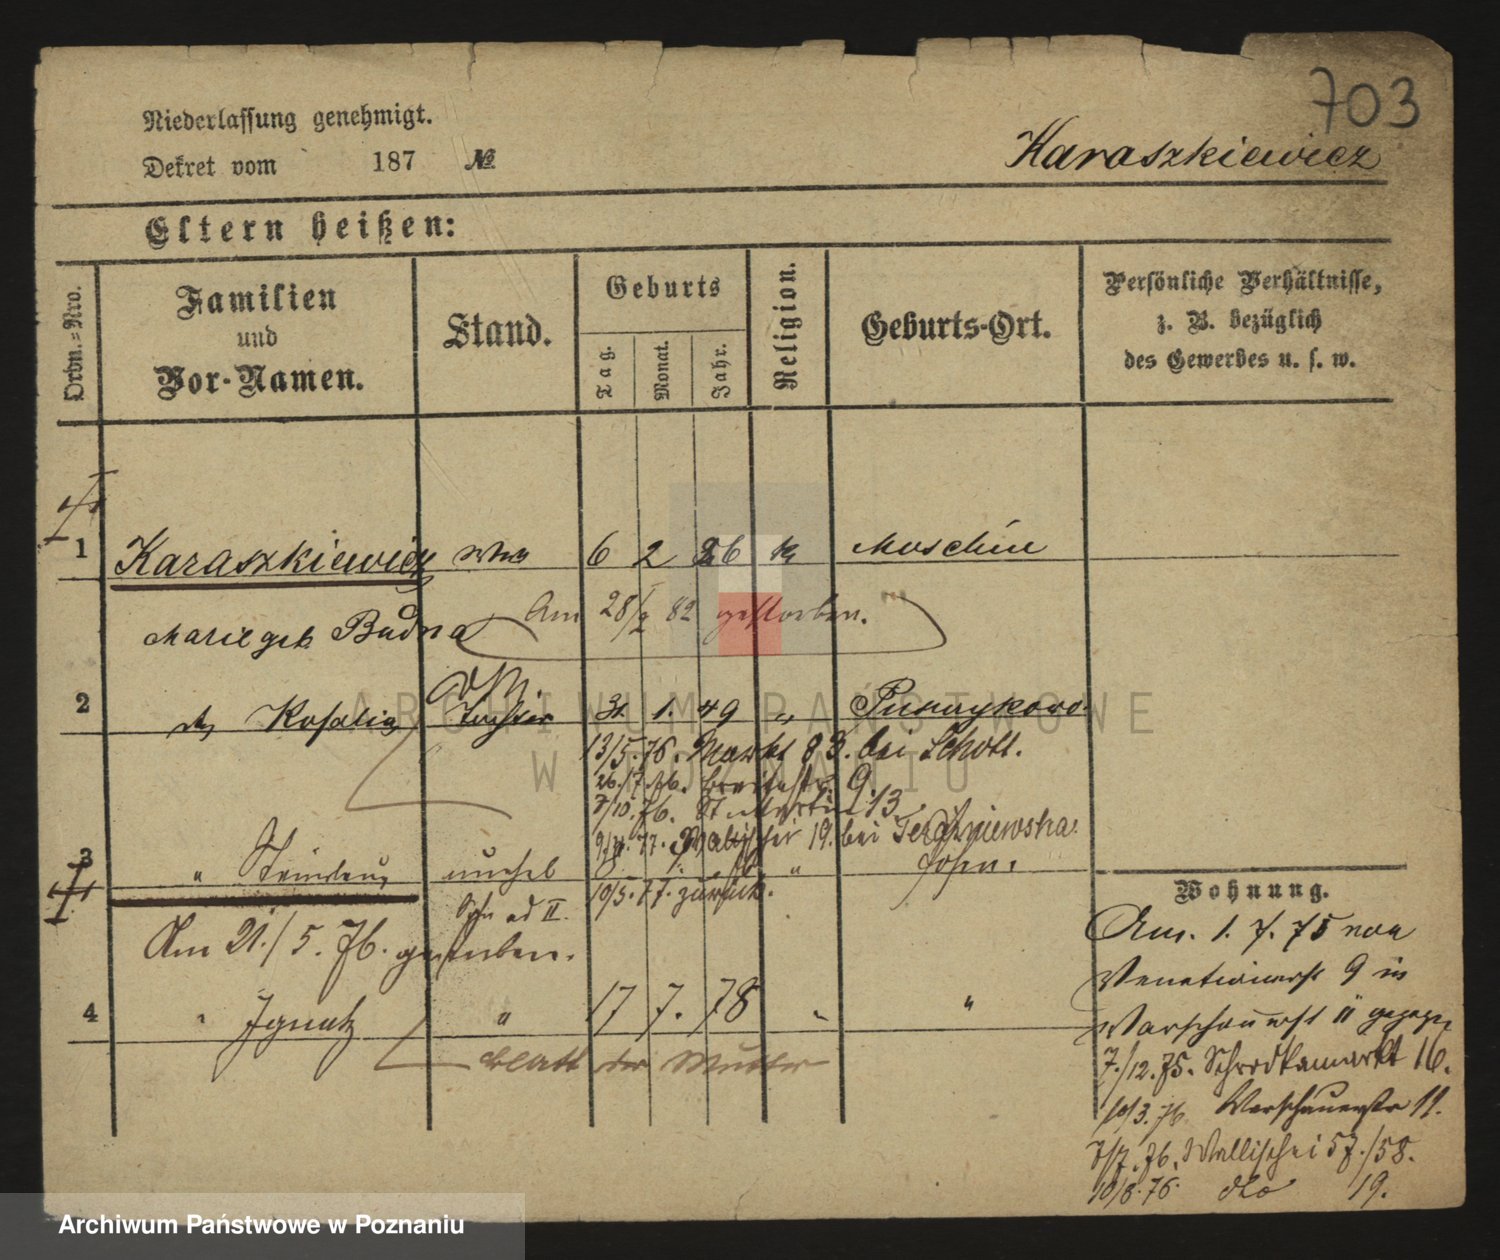 703
Niederlassung genehmigt.
Dekret vom 187 №
Karaszkiewicz
Eltern heißen:
Ordn.-Nro.
Familien
und
Vor-Namen.
Stand.
Geburts
Tag.
Monat.
Jahr.
Religion.
Geburts-Ort.
Persönliche Verhältnisse,
z. B. bezüglich
des Gewerbes u. s. w.
1 Karaszkiewicz Wwe 6 2 26 k Moschin
Marie geb Budna
Am 28/2 82 gestorben.
2 Rosalia Tochter 31. 1. 49 "
13/5. 76. Markt 83. bei Schott.
26./7. 76. Breitestr. 9.
7/10. 76. St Martin 13
77. Wallischei 19. bei
3 " unehel "
Sohn ad II.
10/5. 77. zurück.
Am 21./5. 76. gestorben.
4 " Ignatz " 17 7. 78 " "
Blatt der Mutter
Wohnung.
Am. 1. 7. 75 von
Venetianerst 9 in
Warschauerst 11 gezogen
7./12. 75. Schrodkamarkt 16.
10/3. 76 Warschauerstr 11.
7/7. 76. Wallischei 57./58.
10/8. 76. dto 19.
ARCHIWUM PAŃSTWOWE
W POZNANIU
Archiwum Państwowe w Poznaniu